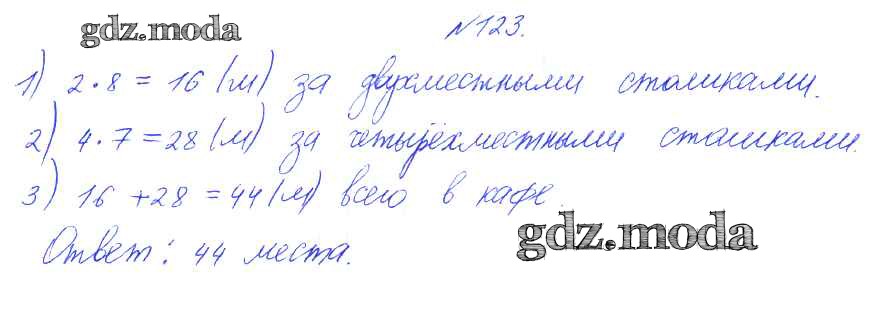 gdz.moda
№123.
1) 2·8 = 16 (м) за двухместными столиками.
2) 4·7 = 28 (м) за четырёхместными столиками.
3) 16 + 28 = 44 (м) всего в кафе.
Ответ: 44 места.
gdz.moda